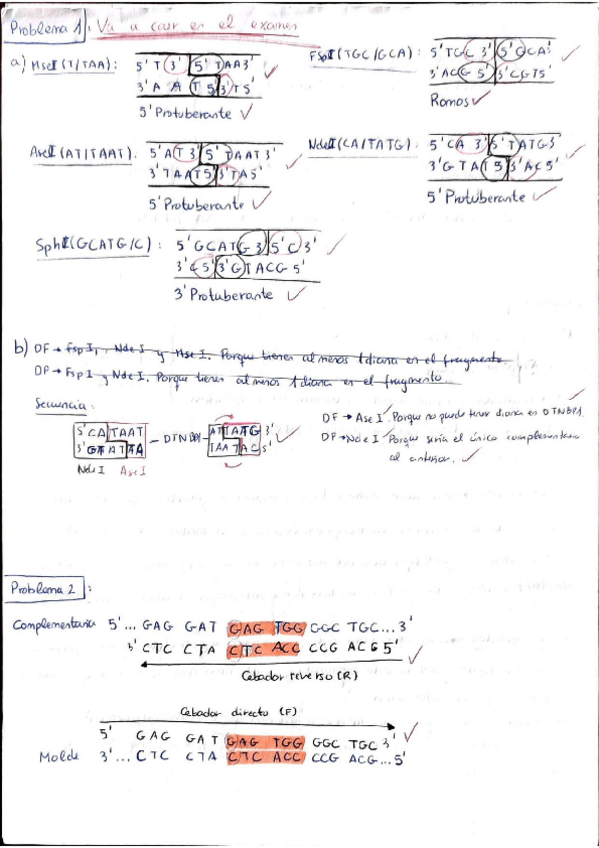 Problema 1: Va a caer en el examen
a) MseI (T/TAA): 5' T 3' 5' TAA 3'
3' A A T 5' 3' T 5'
5' Protuberante
FspI (TGC/GCA): 5' TGC 3' 5' GCA 3'
3' ACG 5' 3' CGT 5'
Romos
AseI (AT/TAAT): 5' AT 3' 5' TAAT 3'
3' TAAT 5' 3' TA 5'
5' Protuberante
NdeI (CA/TATG): 5' CA 3' 5' TATG 3'
3' GTAT 5' 3' AC 5'
5' Protuberante
SphI (GCATG/C): 5' GCATG 3' 5' C 3'
3' C 5' 3' GTACG 5'
3' Protuberante
b) DF → FspI, NdeI y MseI. Porque tienen al menos 1 diana en el fragmento
DP → FspI y NdeI. Porque tienen al menos 1 diana en el fragmento.
Secuencia:
5' CA TAAT — DTNBP1 — AT TATG 3'
3' GTAT TA TAA TAC 5'
NdeI AseI
DF → AseI. Porque no puede tener diana en DTNBP1.
DP → NdeI. Porque sería el único complementario
al anterior.
Problema 2:
Complementaria 5'... GAG GAT GAG TGG GGC TGC... 3'
3' CTC CTA CTC ACC CCG ACG 5'
Cebador reverso (R)
Cebador directo (F)
5' GAG GAT GAG TGG GGC TGC 3'
Molde 3'... CTC CTA CTC ACC CCG ACG... 5'